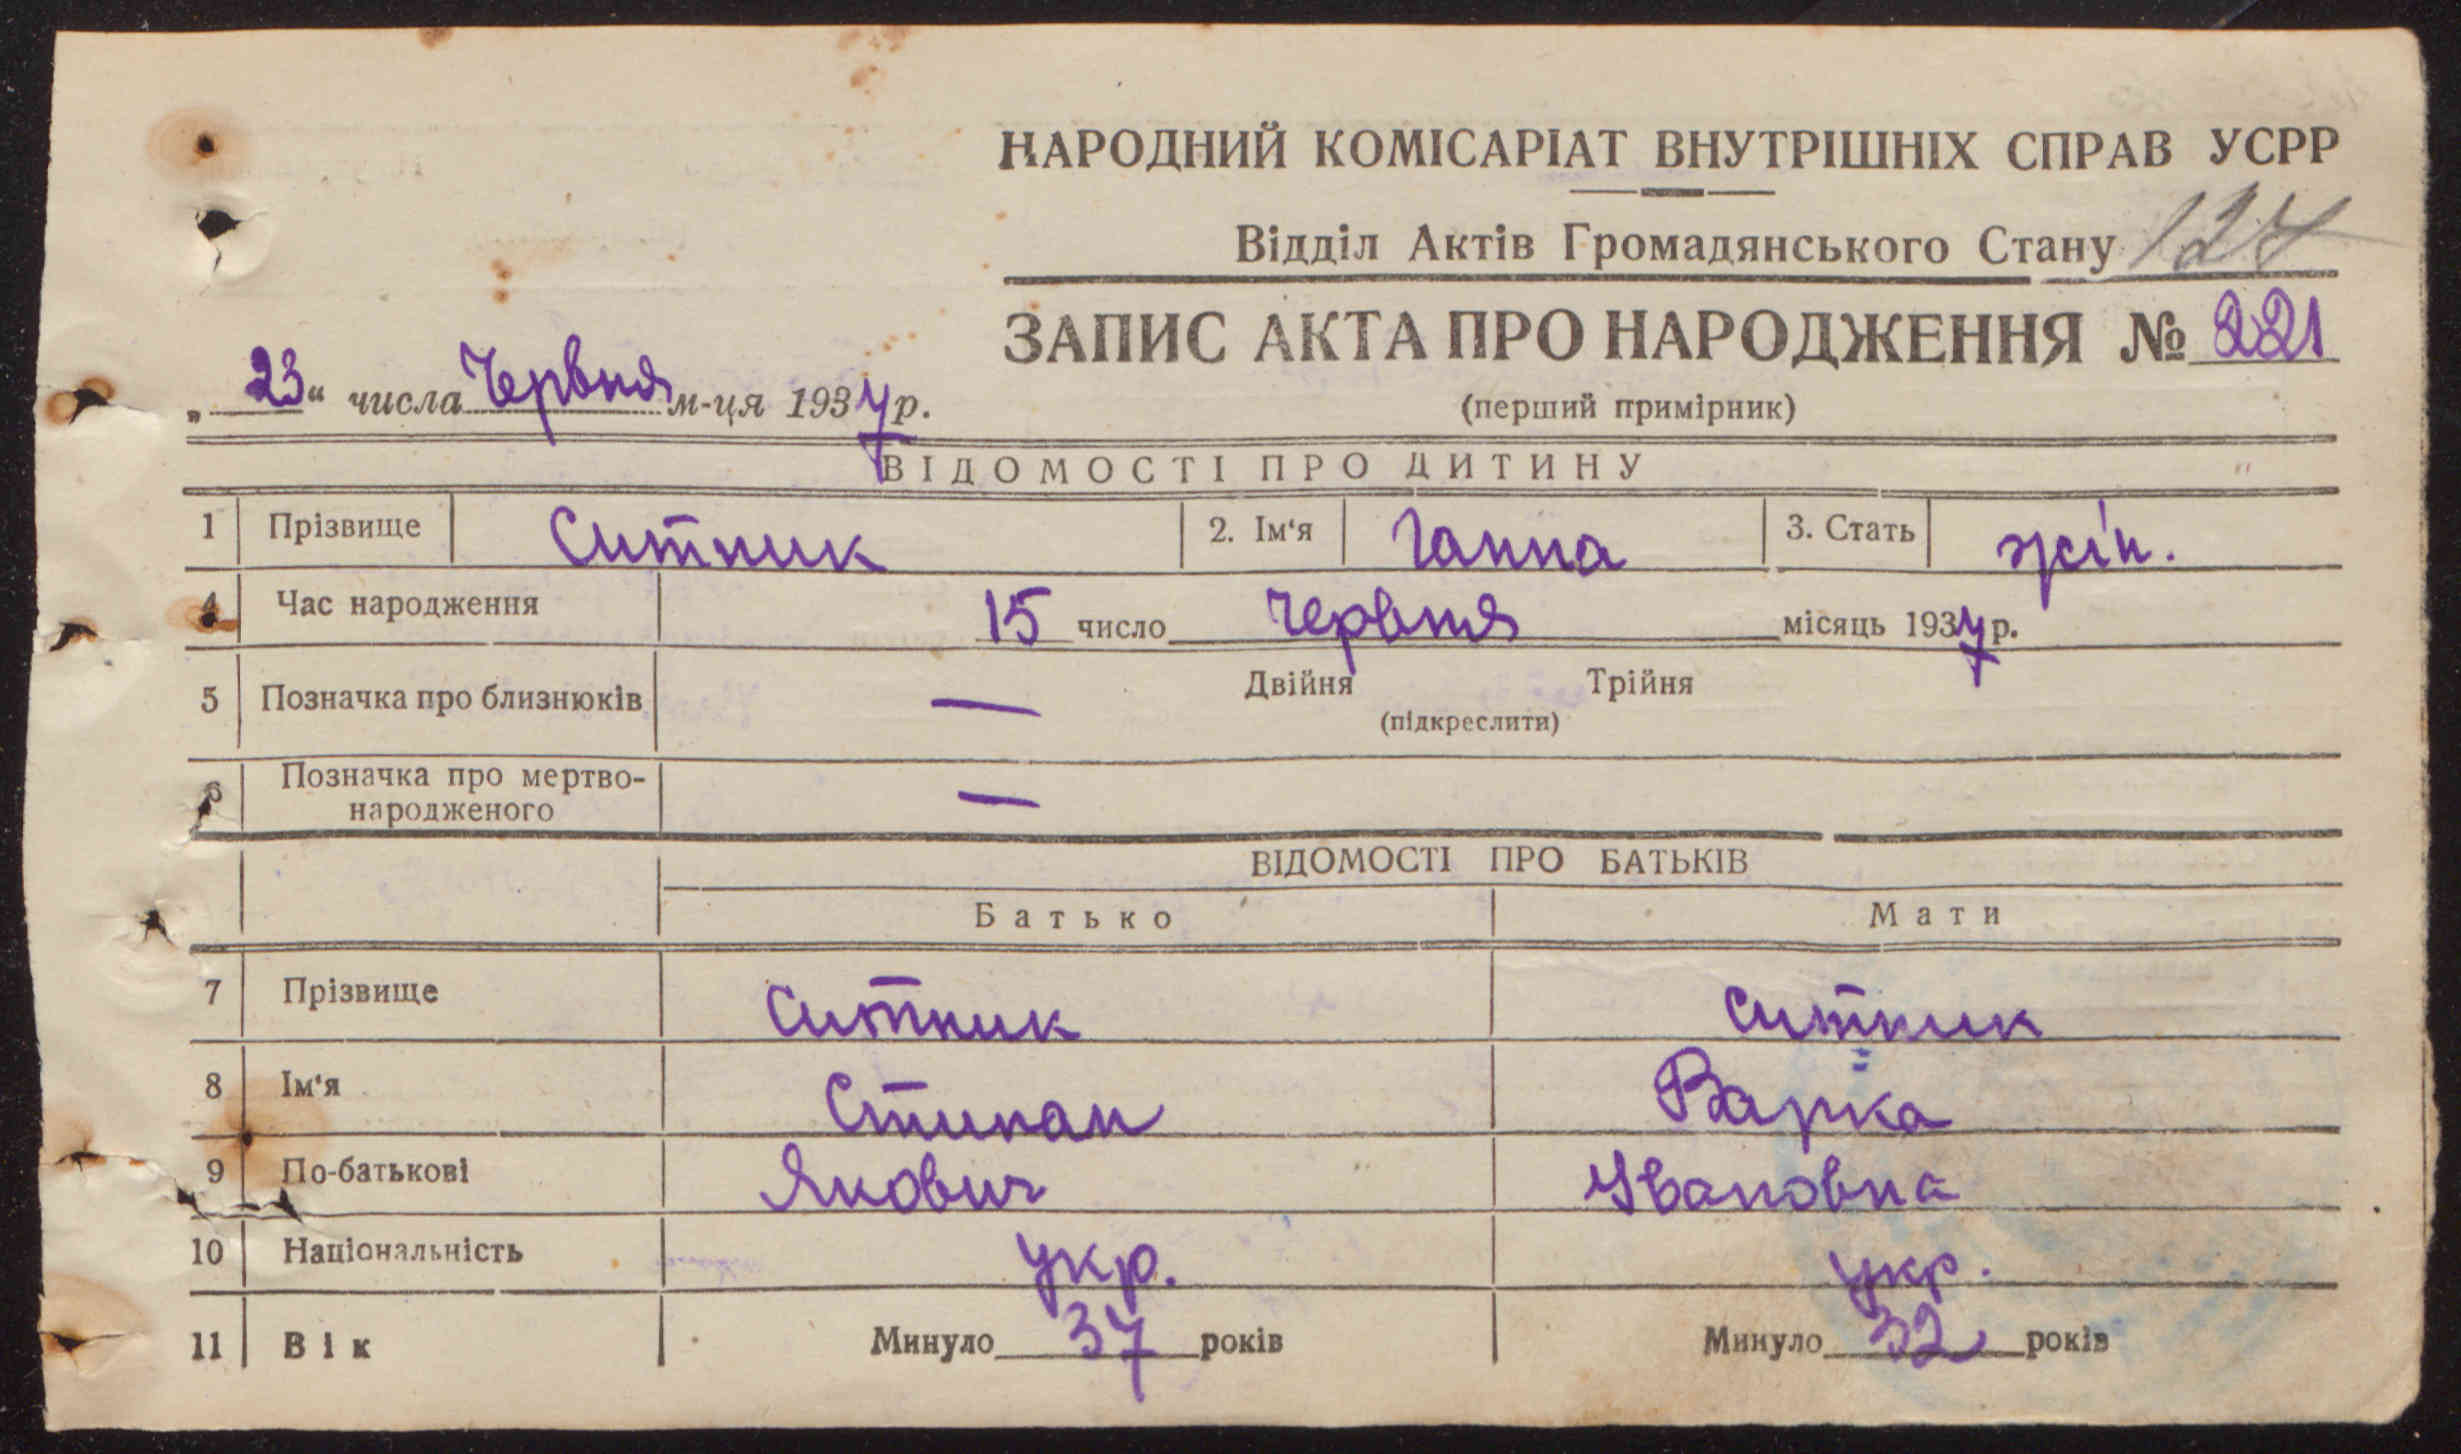 НАРОДНИЙ КОМІСАРІАТ ВНУТРІШНІХ СПРАВ УСРР
Відділ Актів Громадянського Стану 127
ЗАПИС АКТА ПРО НАРОДЖЕННЯ № 221
„23“ числа Червня м-ця 1937 р.
(перший примірник)
ВІДОМОСТІ ПРО ДИТИНУ
1 Прізвище Ситник 2. Ім‘я Ганна 3. Стать жін.
4 Час народження 15 число Червня місяць 1937 р.
5 Позначка про близнюків — Двійня Трійня
(підкреслити)
6 Позначка про мертво-
народженого —
ВІДОМОСТІ ПРО БАТЬКІВ
Батько Мати
7 Прізвище Ситник Ситник
8 Ім‘я Стипан Варка
9 По-батькові Якович Івановна
10 Національність укр. укр.
11 Вік Минуло 37 років Минуло 32 років